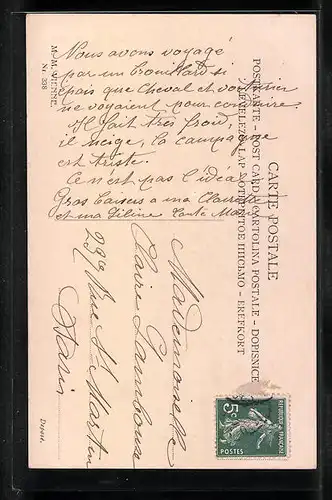 Nous avons voyagé
par un brouillard si
épais que cheval et voiturier
ne voyaient pour conduire
Il fait très froid,
il neige, la campagne
est triste.
Ce n'est pas l'idéal
Gros baisers à ma Clairette
et ma Liline Tante Marie
Mademoiselle
Claire
29 Rue St Martin
Paris
CARTE POSTALE
POSTKARTE – POST CARD – CARTOLINA POSTALE – DOPISNICE
LEVELEZŐ-LAP – – EREFKORT
M. M. VIENNE.
Nr. 338
Dépos.
REPUBLIQUE FRANÇAISE
5c
POSTES